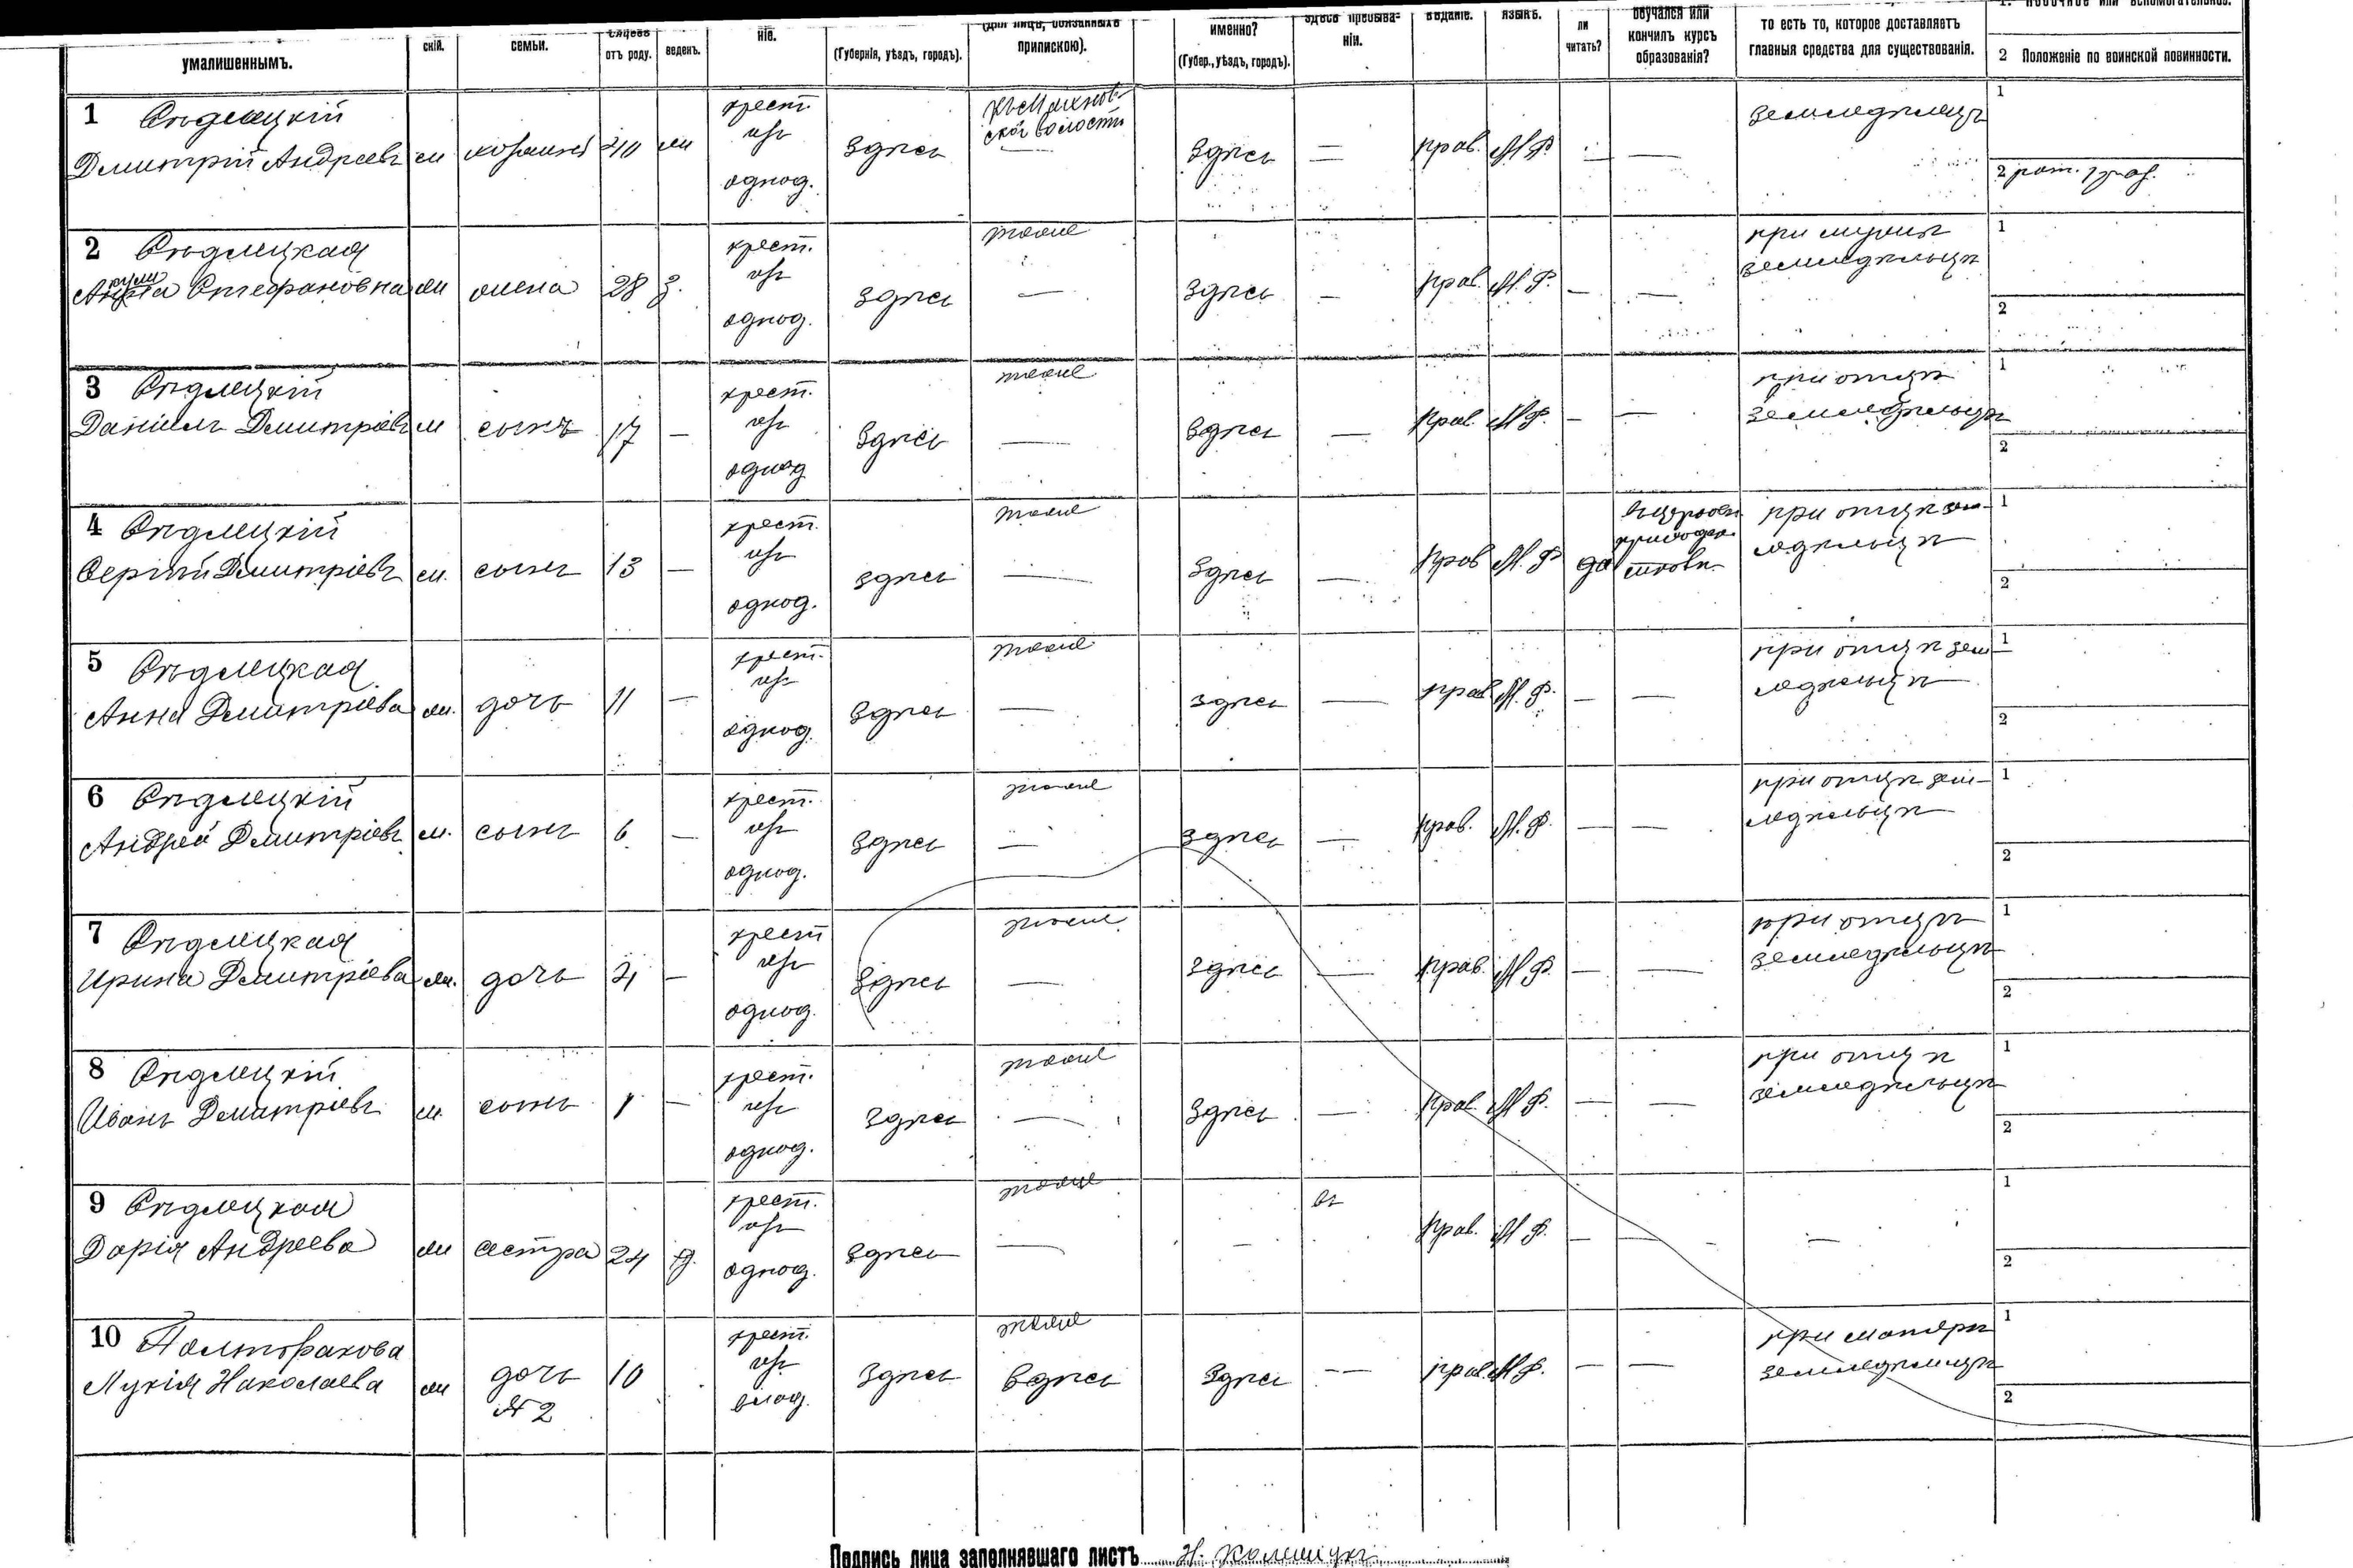 умалишеннымъ.
скій.
семьи.
отъ роду.
веденъ.
ніе.
(Губернія, уѣздъ, городъ).
(для лицъ, обязанныхъ
припискою).
именно?
(Губер., уѣздъ, городъ).
здѣсь пребыва-
ніи.
вѣданіе.
языкъ.
ли
читать?
обучался или
кончилъ курсъ
образованія?
то есть то, которое доставляетъ
главныя средства для существованія.
2 Положеніе по воинской повинности.
1 Сѣдлецкій
Дмитрій Андреевъ
м
хозяинъ
40
жн
крест.
изъ
однод.
Здѣсь
ской волости
—
Здѣсь
—
прав.
М.Ф.
—
—
земледѣлецъ
1
2
2 Сѣдлецкая
Стефановна
жн
жена
28
з.
крест.
изъ
однод.
здѣсь
тоже
—
здѣсь
—
прав.
М.Ф.
—
—
при мужѣ
земледѣльцѣ
1
2
3 Сѣдлецкій
Даніилъ Дмитріевъ
м
сынъ
17
—
крест.
изъ
однод
Здѣсь
тоже
—
Здѣсь
—
прав.
М.Ф.
—
—
при отцѣ
земледѣльцѣ
1
2
4 Сѣдлецкій
Сергѣй Дмитріевъ
м.
сынъ
13
—
крест.
изъ
однод.
здѣсь
тоже
—
Здѣсь
—
прав
М.Ф
да
при отцѣ зем-
ледѣльцѣ
1
2
5 Сѣдлецкая
Анна Дмитріева
жн.
дочь
11
—
крест.
изъ
однод.
здѣсь
тоже
—
здѣсь
—
прав.
М.Ф.
—
—
при отцѣ зем
ледѣльцѣ
1
2
6 Сѣдлецкій
Андрей Дмитріевъ
м.
сынъ
6
—
крест.
изъ
однод.
Здѣсь
тоже
—
здѣсь
—
прав.
М.Ф.
—
—
при отцѣ зем-
ледѣльцѣ
1
2
7 Сѣдлецкая
Ирина Дмитріева
жн.
дочь
4
—
крест
изъ
однод.
Здѣсь
тоже
—
здѣсь
—
прав.
М.Ф.
—
—
при отцѣ
земледѣльцѣ
1
2
8 Сѣдлецкій
Иванъ Дмитріевъ
м.
сынъ
1
—
крест.
изъ
однод.
Здѣсь
тоже
—
Здѣсь
—
прав.
М.Ф.
—
—
при отцѣ
земледѣльцѣ
1
2
9 Сѣдлецкая
Дарія Андреева
жн
сестра
24
д.
крест.
изъ
однод.
Здѣсь
тоже
—
—
вр
прав.
М.Ф.
—
—
—
1
2
10
Лукія Николаева
жн
дочь
№ 2
10
крест.
изъ
Здѣсь
тоже
Здѣсь
Здѣсь
—
прав.
М.Ф.
—
—
при матери
земледѣлицѣ
1
2
Подпись лица заполнявшаго листъ